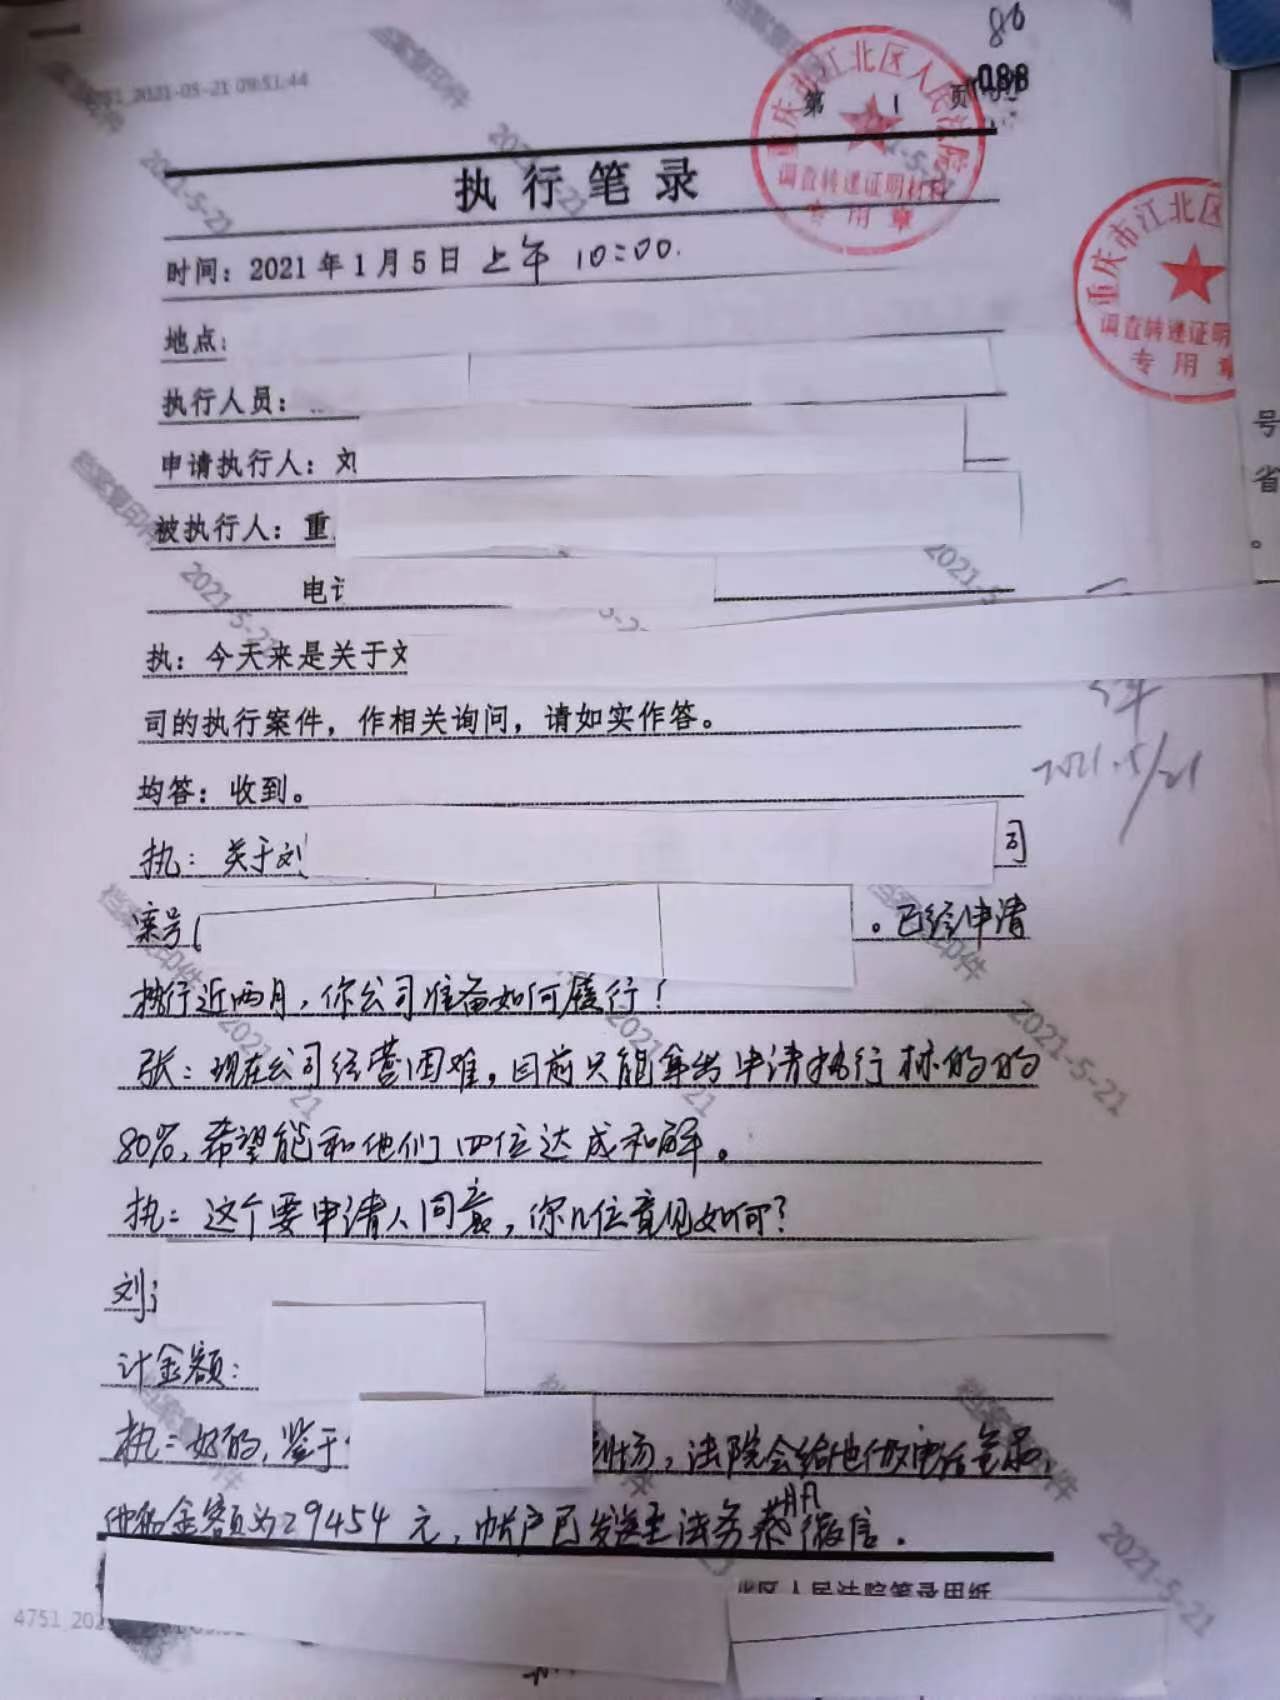 86
088
4751_2021-05-21 09:51:44
第 1 页
重庆市江北区人民法院
调查转递证明材料
专用章
执行笔录
重庆市江北区
调查转递证明
专用章
时间：2021年1月5日 上午 10:00.
地点：
执行人员：
申请执行人：刘
被执行人：重
号
省
。
电
执：今天来是关于
司的执行案件，作相关询问，请如实作答。
2021.5/21
均答：收到。
执：关于刘 司
案号( 。已经申请
执行近两月，你公司准备如何履行！
张：现在公司经营困难，目前只能拿出申请执行标的的
80%，希望能和他们四位达成和解。
执：这个要申请人同意，你几位意见如何？
刘
计金额：
执：好的，鉴于 到场，法院会给他做电话笔录，
他的金额为29454元，帐户已发送至法务蔡 微信。
北区人民法院笔录用纸
4751_202
档案复印件
2021-5-21
档案复印件
2021-5-21
档案复印件
2021-5-21
档案复印件
2021-5-21